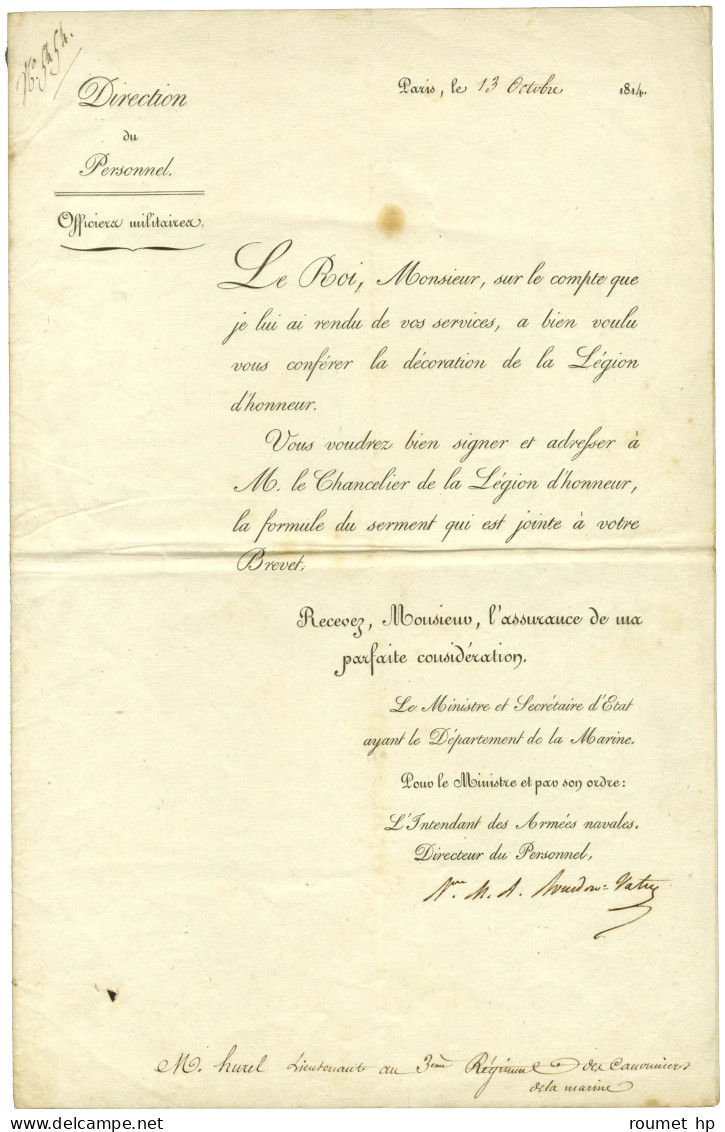 N.o 5454.
Direction
du
Personnel.
Officiers militaires.
Paris, le 13 Octobre 1814.
Le Roi, Monsieur, sur le compte que
je lui ai rendu de vos services, a bien voulu
vous conférer la décoration de la Légion
d'honneur.
Vous voudrez bien signer et adresser à
M. le Chancelier de la Légion d'honneur,
la formule du serment qui est jointe à votre
Brevet.
Recevez, Monsieur, l'assurance de ma
parfaite considération.
Le Ministre et Secrétaire d'Etat
ayant le Département de la Marine.
Pour le Ministre et par son ordre:
L'Intendant des Armées navales.
Directeur du Personnel,
M. A. Bourdon=Vatry
M. hurel Lieutenant au 3ème Régiment de Canonniers
de la marine
roumet hp